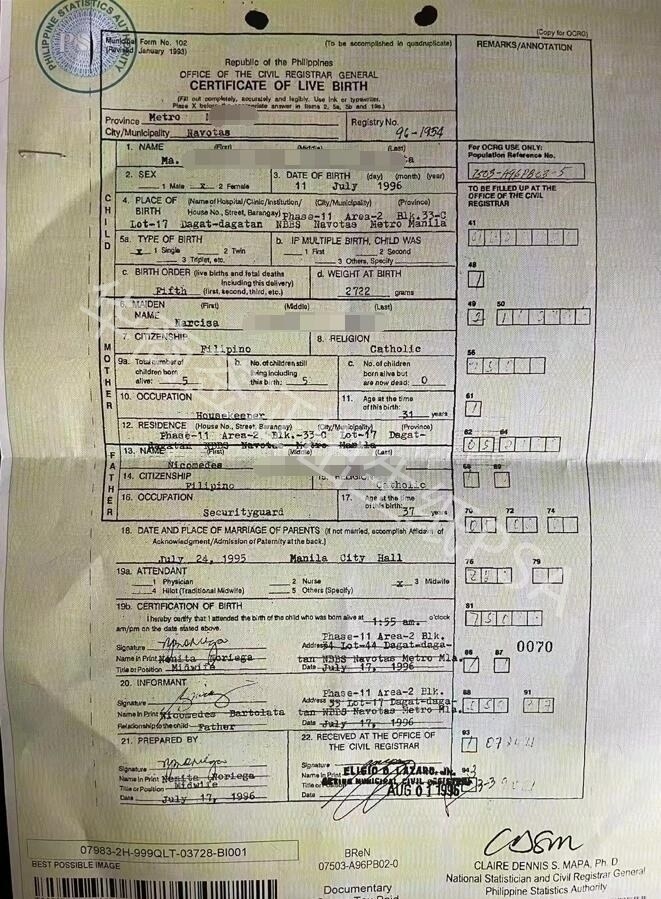 PHILIPPINE STATISTICS AUTHORITY
(Copy for OCRG)
Municipal Form No. 102 (To be accomplished in quadruplicate)
(Revised January 1993)
REMARKS/ANNOTATION
Republic of the Philippines
OFFICE OF THE CIVIL REGISTRAR GENERAL
CERTIFICATE OF LIVE BIRTH
(Fill out completely, accurately and legibly. Use ink or typewriter.
Place X before the appropriate answer in items 2, 5a, 5b and 19a.)
Province Metro
Registry No.
City/Municipality Navotas 96-1954
1. NAME (First) (Middle) (Last)
Ma.
For OCRG USE ONLY:
Population Reference No.
2. SEX
1 Male x 2 Female
3. DATE OF BIRTH (day) (month) (year)
11 July 1996
7503-A96PB03-5
TO BE FILLED UP AT THE
OFFICE OF THE CIVIL
REGISTRAR
CHILD
4. PLACE OF BIRTH (Name of Hospital/Clinic/Institution/ (City/Municipality) (Province)
House No., Street, Barangay) Phase-11 Area-2 Blk.33-C
Lot-17 Dagat-dagatan NBBS Navotas Metro Manila
41
5a. TYPE OF BIRTH
x 1 Single 2 Twin
3 Triplet, etc.
b. IF MULTIPLE BIRTH, CHILD WAS
1 First 2 Second
3 Others, Specify
48
c. BIRTH ORDER (live births and fetal deaths
including this delivery)
Fifth (first, second, third, etc.)
d. WEIGHT AT BIRTH
2722 grams
49 50
MOTHER
6. MAIDEN NAME (First) (Middle) (Last)
Narcisa
7. CITIZENSHIP
Filipino
8. RELIGION
Catholic
56
9a. Total number of
children born
alive: 5
b. No. of children still
living including
this birth: 5
c. No. of children
born alive but
are now dead: 0
61
10. OCCUPATION
Housekeeper
11. Age at the time
of this birth:
31 years
12. RESIDENCE (House No., Street, Barangay) (City/Municipality) (Province)
Phase-11 Area-2 Blk.-33-C Lot-17 Dagat-
dagatan NBBS Navotas Metro Manila
62 64
FATHER
13. NAME (First) (Middle) (Last)
Nicomedes
14. CITIZENSHIP
Filipino
15. RELIGION
Catholic
68 69
16. OCCUPATION
Securityguard
17. Age at the time
of this birth:
37 years
70 72 74
18. DATE AND PLACE OF MARRIAGE OF PARENTS (If not married, accomplish Affidavit of
Acknowledgment/Admission of Paternity at the back.)
July 24, 1995 Manila City Hall
76 79
19a. ATTENDANT
1 Physician 2 Nurse x 3 Midwife
4 Hilot (Traditional Midwife) 5 Others (Specify)
19b. CERTIFICATION OF BIRTH
I hereby certify that I attended the birth of the child who was born alive at 1:55 am. o'clock
am/pm on the date stated above.
81
Signature
Name in Print Nenita Noriega
Title or Position Midwife
Phase-11 Area-2 Blk.
Address 34 Lot-44 Dagat-daga-
tan NBBS Navotas Metro Mla.
Date July 17, 1996
0070
86 87
20. INFORMANT
Signature
Name in Print Nicomedes Bartolata
Relationship to the child Father
Phase-11 Area-2 Blk.
Address 33 Lot-17 Dagat-daga-
tan NBBS Navotas Metro Mla.
Date July 17, 1996
88 91
21. PREPARED BY
Signature
Name in Print Nenita Noriega
Title or Position Midwife
Date July 17, 1996
22. RECEIVED AT THE OFFICE OF
THE CIVIL REGISTRAR
Signature
Name in Print ELIGIO D. LAZARO, Jr.
Title or Position ACTING MUNICIPAL CIVIL REGISTRAR
Date AUG 01 1996
93
94
07983-2H-999QLT-03728-BI001
BEST POSSIBLE IMAGE
BReN
07503-A96PB02-0
Documentary
CLAIRE DENNIS S. MAPA, Ph. D
National Statistician and Civil Registrar General
Philippine Statistics Authority